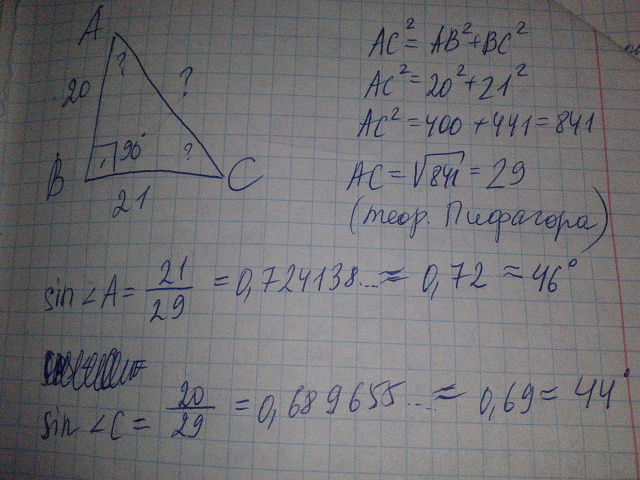 A
?
?
20
90°
?
B
C
21
AC² = AB² + BC²
AC² = 20² + 21²
AC² = 400 + 441 = 841
AC = √841 = 29
(теор. Пифагора)
sin ∠A = 21/29 = 0,724138... ≈ 0,72 ≈ 46°
sin ∠C = 20/29 = 0,689655... ≈ 0,69 ≈ 44°